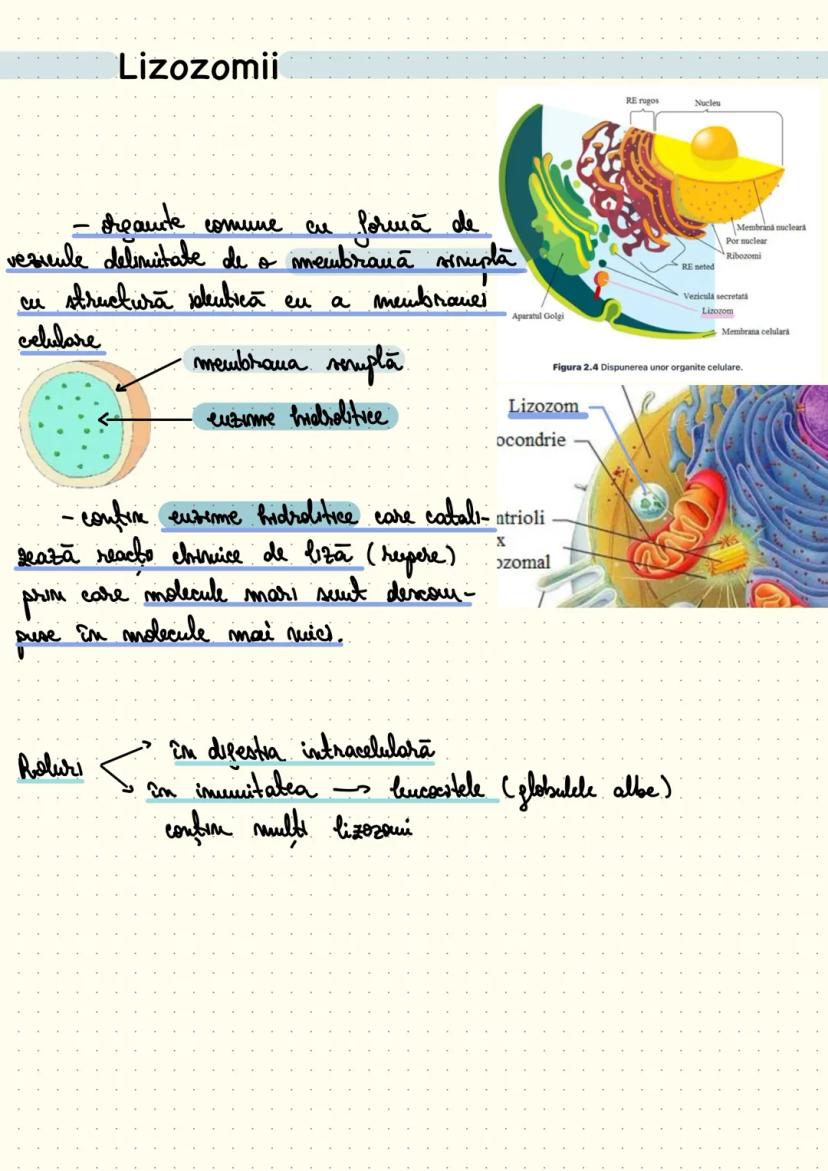 Lizozomii
RE rugos
Nucleu
Membrană nucleară
Por nuclear
Ribozomi
RE neted
Veziculă secretată
Lizozom
Aparatul Golgi
Membrana celulară
Figura 2.4 Dispunerea unor organite celulare.
- organite comune cu formă de
vezicule delimitate de o membrană simplă
cu structură identică cu a membranei
celulare
membrana simplă
enzime hidrolitice
Lizozom
ocondrie
ntrioli
x
ozomal
- conțin enzime hidrolitice care catali-
zează reacții chimice de liză (rupere)
prin care molecule mari sunt descom-
puse în molecule mai mici.
Roluri
în digestia intracelulară
în imunitatea → leucocitele (globulele albe)
conțin mulți lizozomi